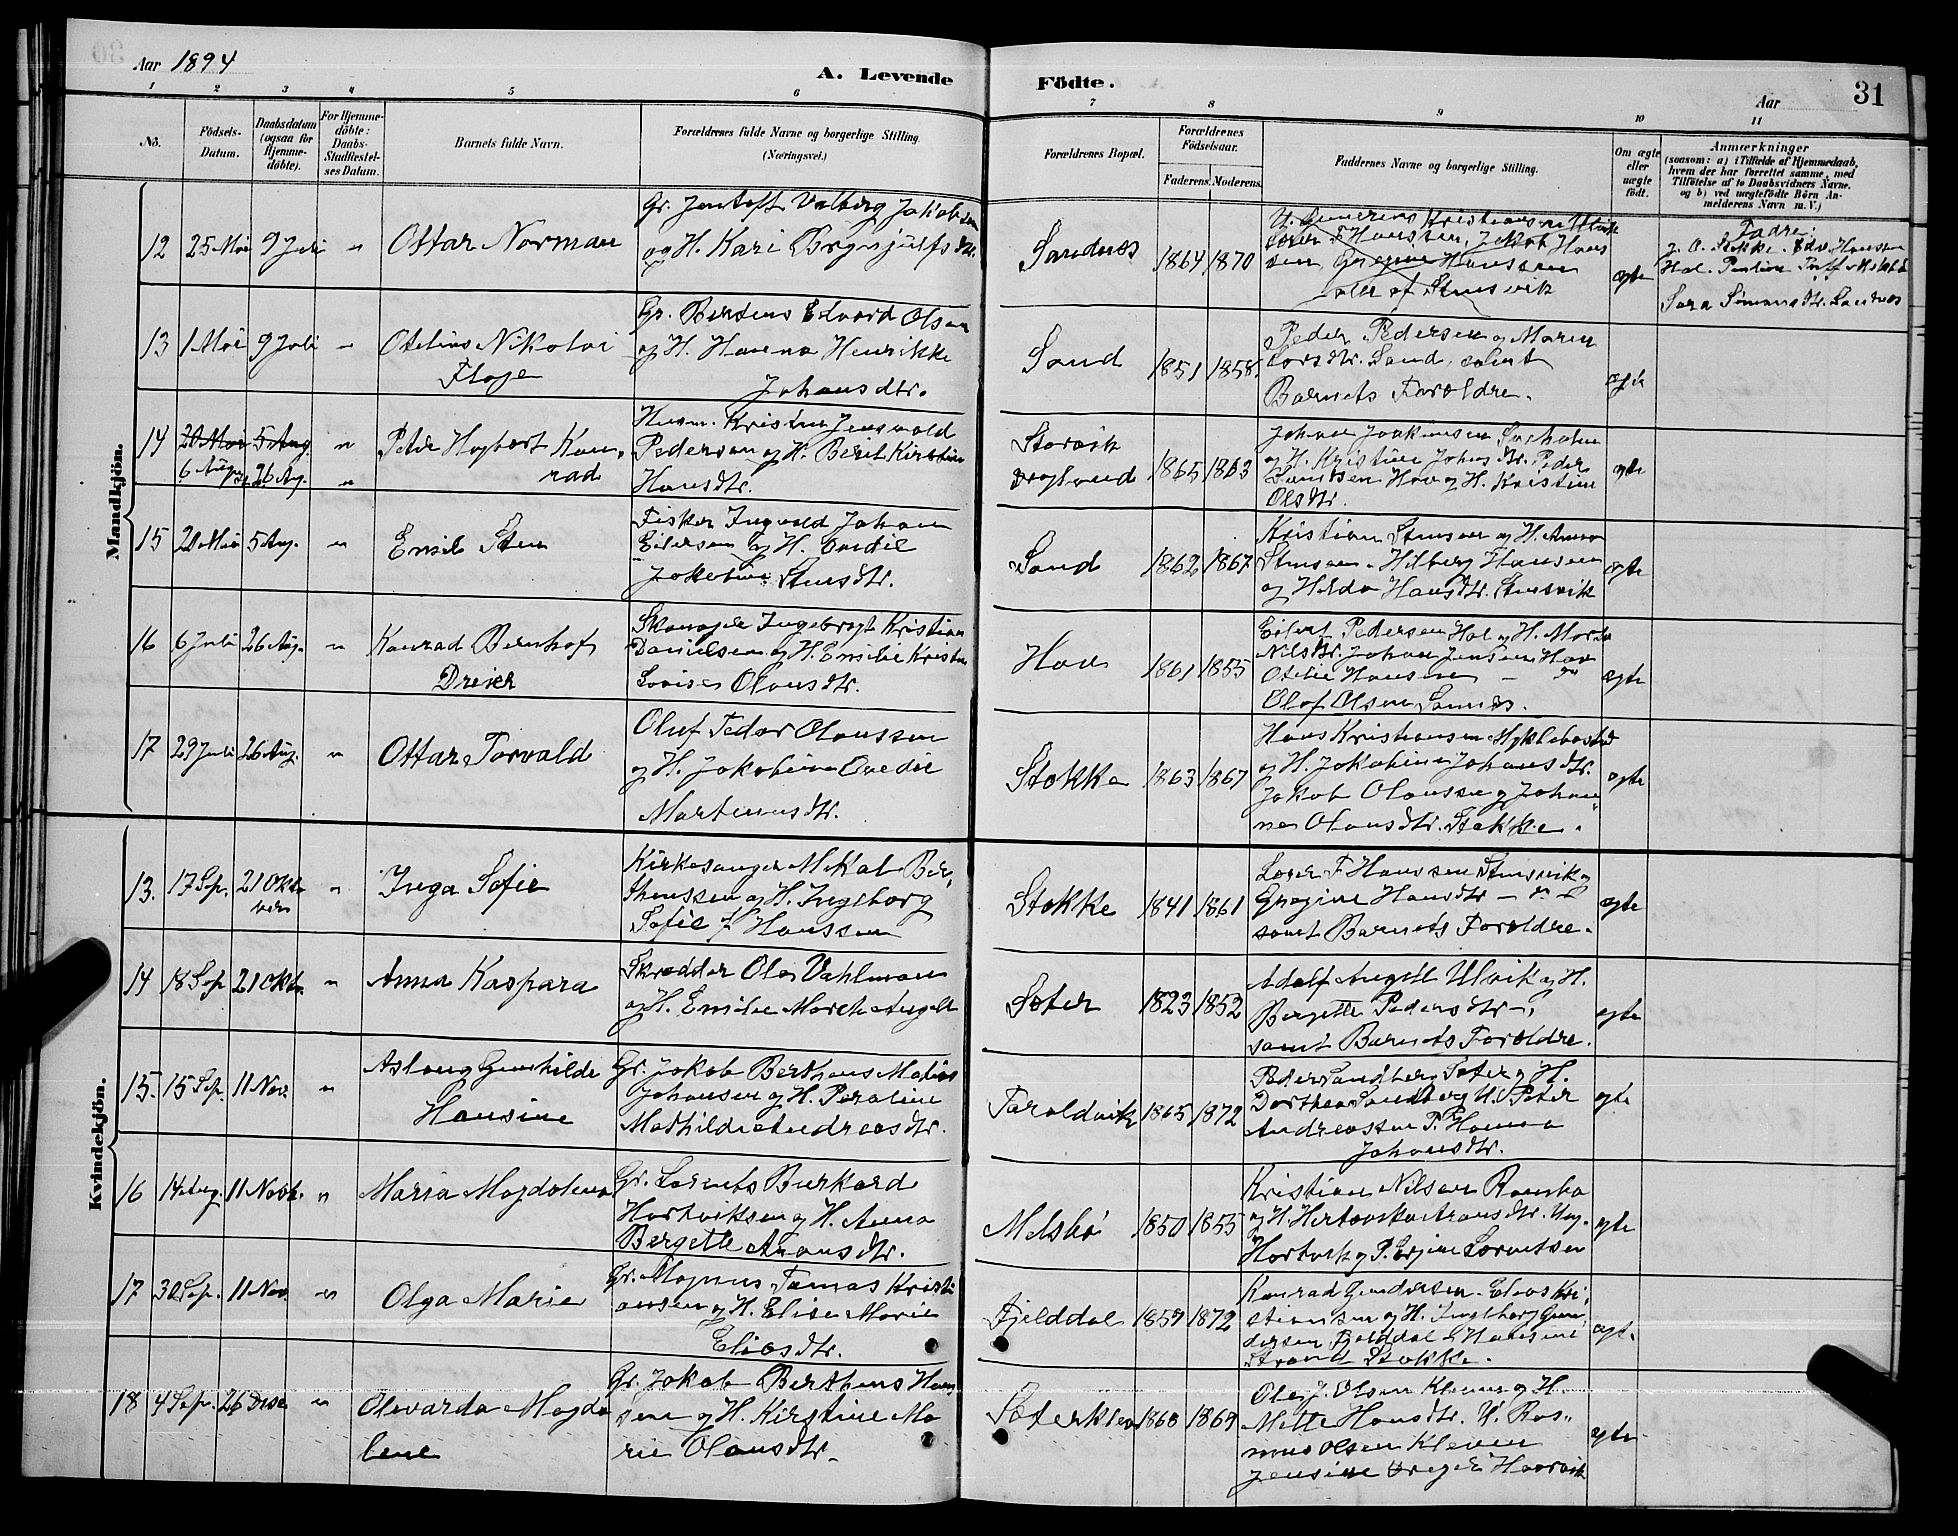 Aar 1894
A. Levende Födte.
Aar
31
1 2 3 4 5 6 7 8 9 10 11
No.
Födsels-Datum.
Daabsdatum (ogsaa for Hjemmedöbte).
For Hjemmedöbte: Daabs-Stadfæstelses Datum.
Barnets fulde Navn.
Forældrenes fulde Navne og borgerlige Stilling. (Næringsvei.)
Forældrenes Bopæl.
Forældrenes Födselsaar.
Faderens. Moderens.
Faddernes Navne og borgerlige Stilling.
Om ægte eller uægte födt.
Anmærkninger
(saasom: a) i Tilfælde af Hjemmedaab,
hvem der har forrettet samme, med
Tilföielse af to Daabsvidners Navne.
og b) ved uægtefödte Börn Anmelderens Navn m. V.)
Mandkjön.
12 25 Mai 9 Juli " Ottar Norman
Gr. Jentoft Valberg Jakobsen
og H. Kari Brynjulfsdtr.
Sandnes 1864 1870
Kristiansen
Hanssen, Jakob Hans
sen, Hanssen
alle af Stensvik
ægte
Fadre:
J. O. Stokke. Edv. Hanssen
Hol. Pauline
Sara Simonsdtr. Sandnes
13 1 Mai 9 Juli " Otelius Nikolai
Floje
Gr. Berteus Edvard Olsen
og H. Hanna Henrikke
Johansdtr.
Sand 1851 1858.
Peder Pedersen og Maren
Larsdtr. Sand, samt
Barnets Forældre.
ægte
14 20 Mai 5 Aug " Peder Hagbart Kon-
6 August 26 Ag. " rad
Husm. Kristen Jensvold
Pedersen og H. Berit Kirstine
Hansdtr.
Storvik
1865 1863
Johan Joakimsen
og H. Kristine Johansdtr. Peder
Hov og H. Kristine
Olsdtr.
ægte
15 20 Mai 5 Aug. " Emil Sten
Fisker Ingvald Johan
Eilersen og H. Ovedie
Jakobine Stensdtr.
Sand 1862 1867
Kristian Stensen og H. Anna
Stensen. Hilberg Hansen
og Hilda Hansdtr. Stensvik
ægte
16 6 Juli 26 Aug. " Konrad Bernhof
Dreier
Ingebrigt Kristian
Danielsen og H. Emilie Kristine
Lovise Olausdtr.
Hov 1861 1855
Eilert Pedersen Hol og H. Marta
Nilsdtr. Johan Jensen Hov
Otelie Hansen — do
Olof Olsen Sannes.
ægte
17 29 Juli 26 Aug. " Ottar Torvald
Oluf Tedor Olaussen
og H. Jakobine Ovedie
Martinusdtr.
Stokke 1863 1867
Hans Kristiansen Myklebostad
og H. Jakobine Johansdtr.
Jakob Olaussen og Johan-
na Olausdtr. Stokke.
ægte
Kvindekjön.
13. 17 Sep. 21 Okto
ber " Inga Sofie
Kirkesanger Mikal Ber-
theussen og H. Ingeborg
Sofie f. Hanssen
Stokke 1841 1861
Loren F Hanssen Stensvik og
Gregine Hansdtr — do
samt Barnets Foreldre.
ægte
14 18 Sep 21 Okto. " Anna Kaspara
Skrædder Ola Vahlman
og H. Emilie Marek Angell
Soter 1823 1852
Adolf Angell Ulvik og H.
Bergette Pedersdtr —,
samt Barnets Foreldre.
ægte
15. 15 Sep. 11 Nov. " Aslaug Gunhilde
Hansine
Gr. Jakob Bertheus Matias
Johansen og H. Peroline
Mathilde Andreasdtr.
Taraldvik 1865 1872
Peder Sandberg Soter og H.
Dorthea Sandberg U. Peter
Andreassen P. Hanna
Johansdtr.
ægte
16 14 Aug. 11 Novb. " Maria Magdalena
Gr. Lornts Burkard
Hartviksen og H. Anna
Bergette Aronsdtr.
Melsbö 1850 1855
Kristian Nilsen
og H. Aronsdtr. Ung.
Hartvik og P. Lorentsen
ægte
17 30 Sep. 11 Nov. " Olga Marie
Gr. Magnus Tomas Kristi
ansen og H. Elise Marie
Eliasdtr.
Fjelddal 1859 1872
Konrad Gundersen. Elias Kri-
stiansen og H. Ingeborg Gun-
dersen, Fjelddal og Hansine
Strand Stokke.
ægte
18 4 Sep. 26 Dese " Olevarda Magda
lene
Gr. Jakob Bertheus Han
sen og H. Kirstine Ma
rie Olausdtr.
1860 1869
Ole J. Olsen Kleven og H.
Mette Hansdtr. U. Ras-
mus Olsen Kleven
Jensine
ægte